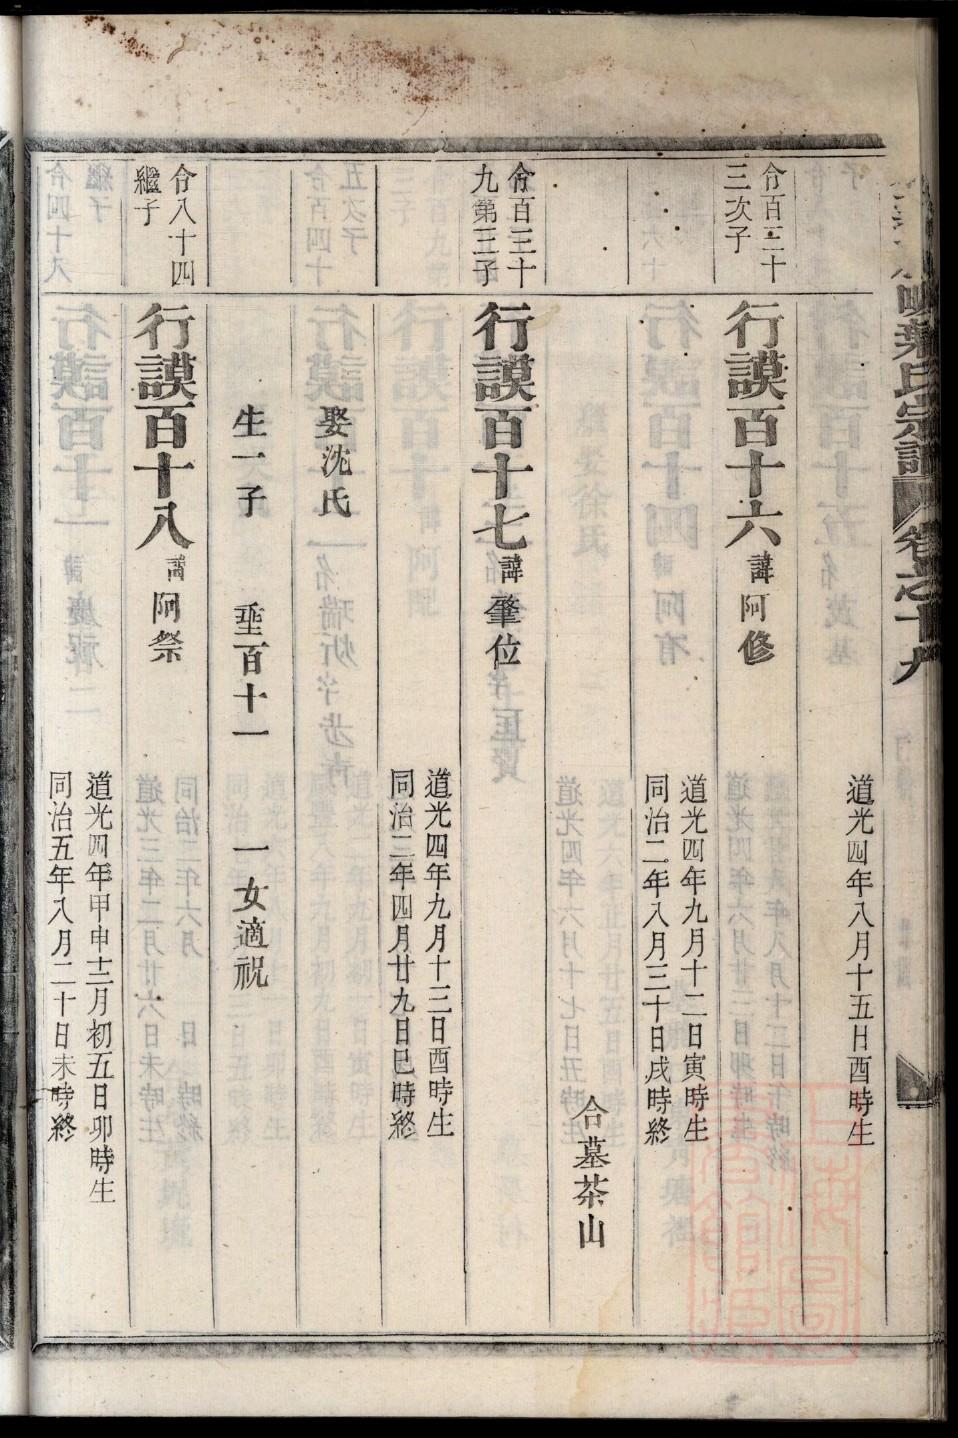 葉氏宗譜
卷之十九
道光四年八月十五日酉時生
三次子
行謨百十六
諱
阿修
道光四年九月十二日寅時生
同治二年八月三十日戌時終
合墓茶山
九第三子
行謨百十七
諱
肇位
道光四年九月十三日酉時生
同治三年四月廿九日巳時終
娶沈氏
生一子
垂百十一
一女適祝
繼子
行謨百十八
諱
阿祭
道光四年甲申十二月初五日卯時生
同治五年八月二十日未時終